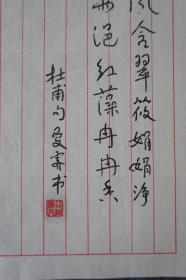 风含翠筱娟娟净
雨浥红蕖冉冉香
杜甫句
书